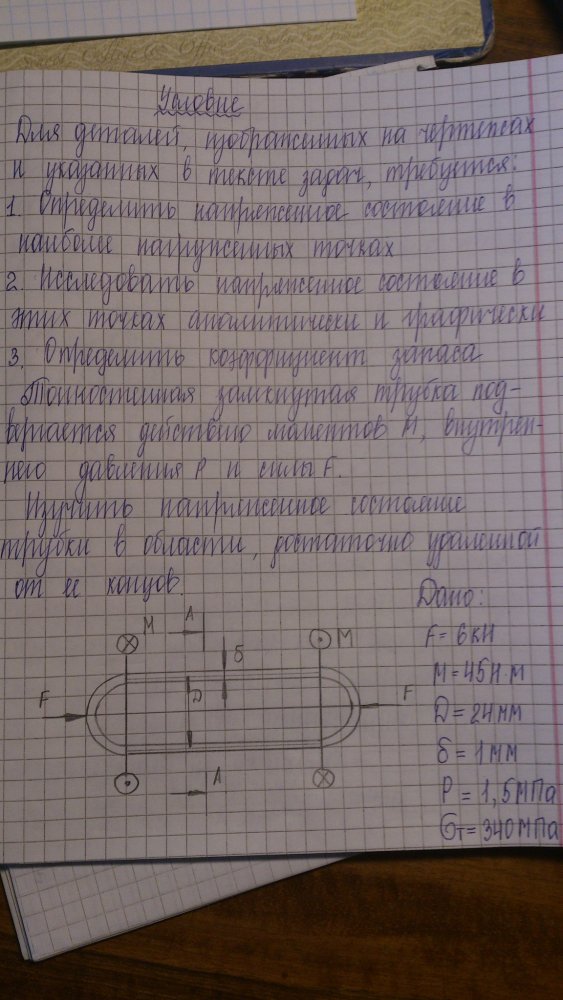 Условие
Для деталей, изображенных на чертежах
и указанных в тексте задач, требуется:
1. Определить напряженное состояние в
наиболее нагруженных точках
2. Исследовать напряженное состояние в
этих точках аналитически и графически
3. Определить коэффициент запаса
Тонкостенная замкнутая трубка под-
вергается действию моментов М, внутрен-
него давления Р и силы F.
Изучить напряженное состояние
трубки в области, достаточно удаленной
от ее концов.
Дано:
F = 6 кН
М = 45 Н·м
D = 24 мм
δ = 1 мм
Р = 1,5 МПа
σт = 340 МПа
М
А
δ
М
F
D
F
А